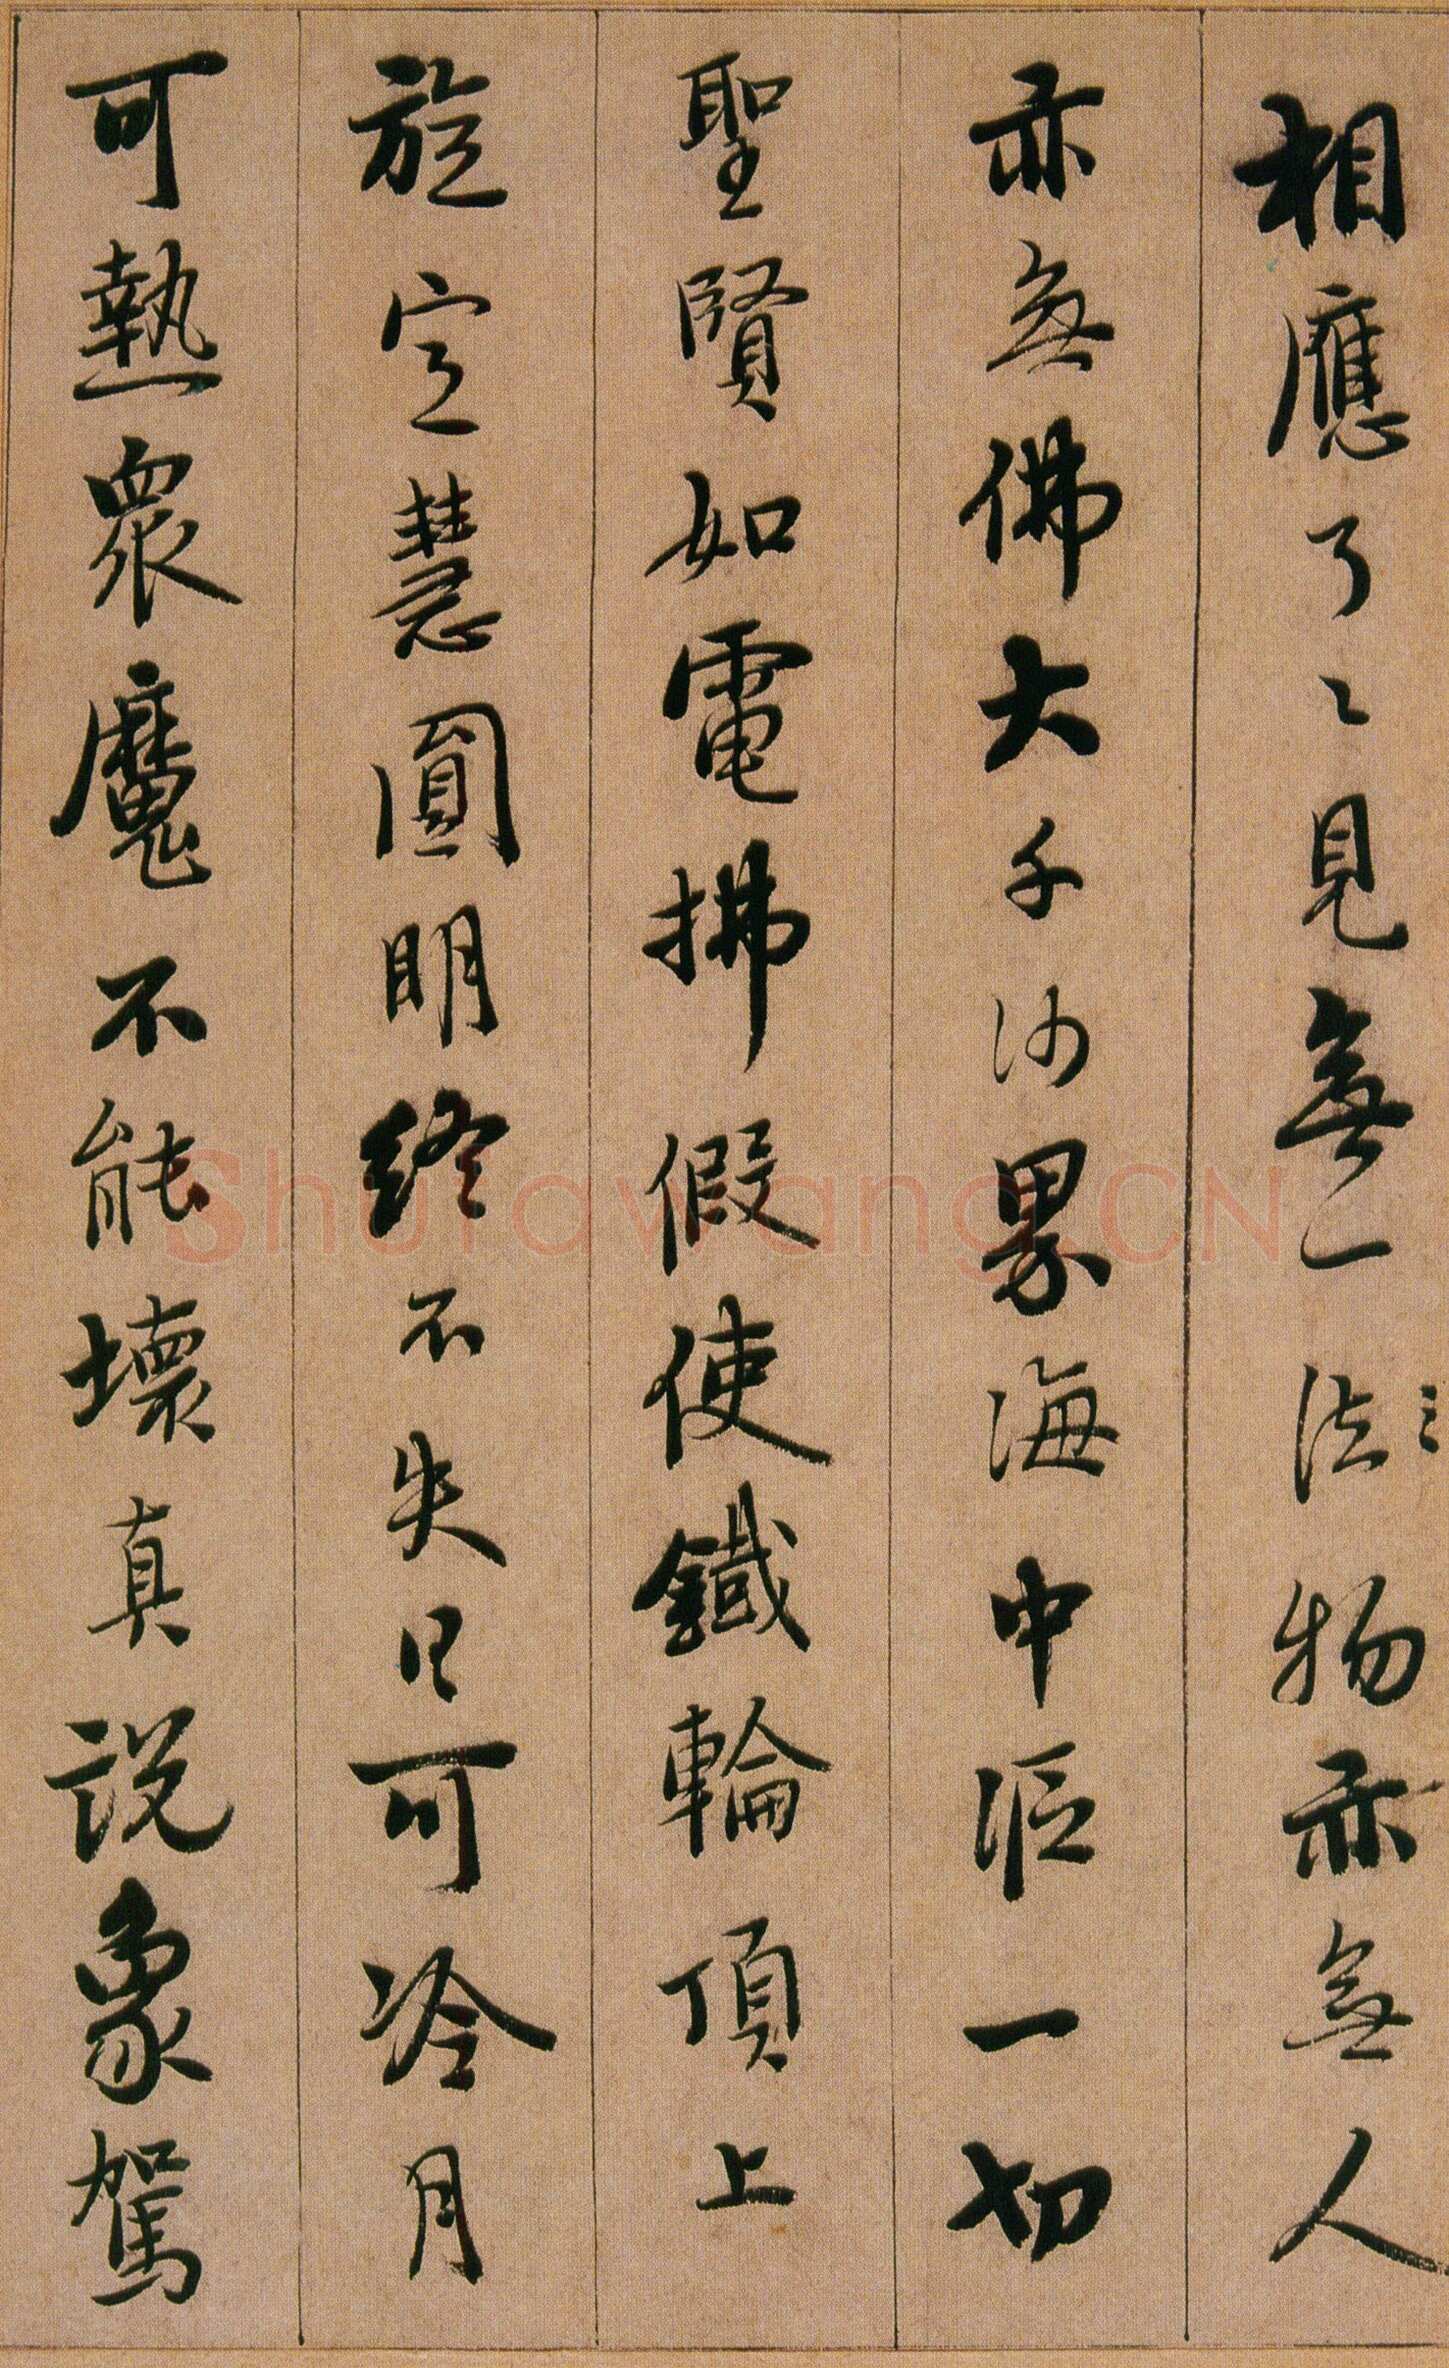 相應了〻見無一法物亦無人
亦無佛大千沙界海中漚一切
聖賢如電拂假使鐵輪頂上
旋定慧圓明終不失日可冷月
可熱眾魔不能壞真說象駕
Shufawang.CN